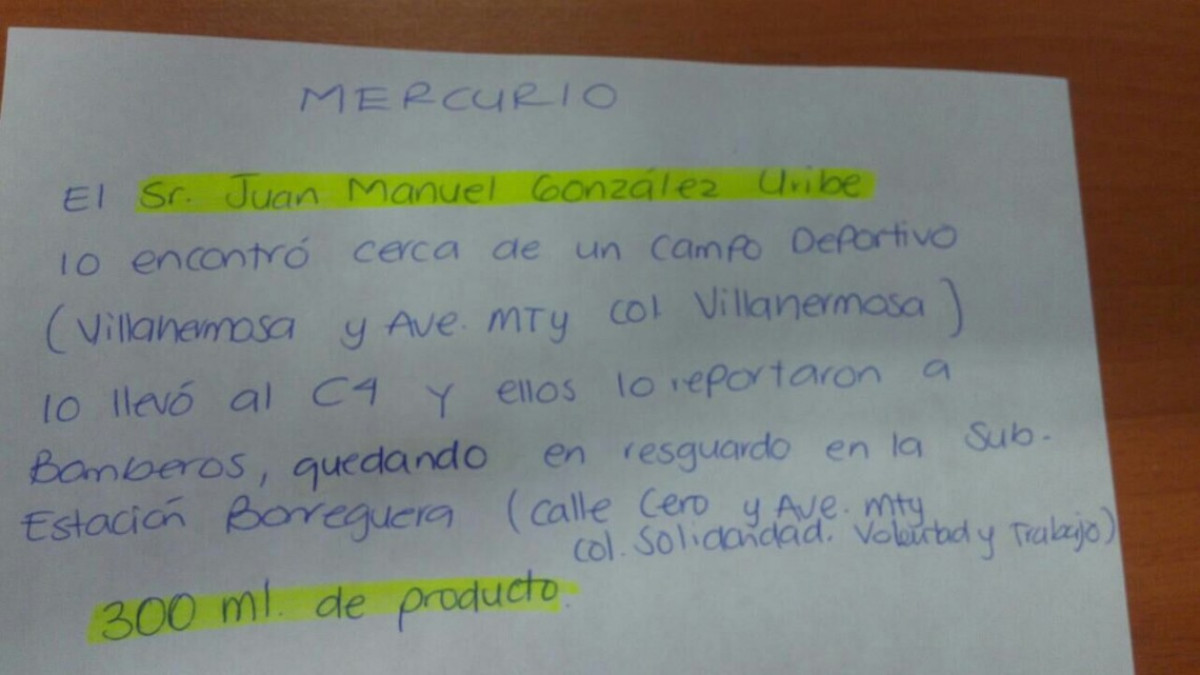 MERCURIO
El Sr. Juan Manuel González Uribe
lo encontró cerca de un Campo Deportivo
(Villahermosa y Ave. MTY Col Villahermosa)
lo llevó al C4 y ellos lo reportaron a
Bomberos, quedando en resguardo en la Sub-
Estación Borreguera (calle Cero y Ave. mty
col. Solidaridad. Voluntad y Trabajo)
300 ml. de producto.